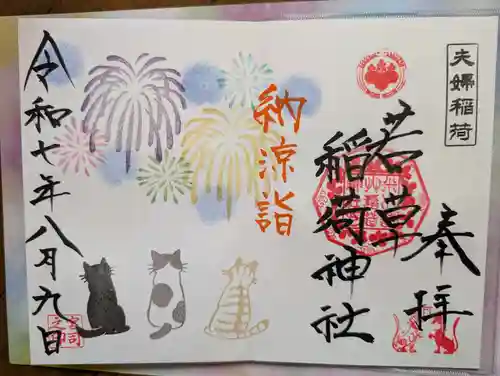 夫婦稲荷
奉拝
若草
稲荷神社
納涼詣
令和七年八月九日
宮司
之印